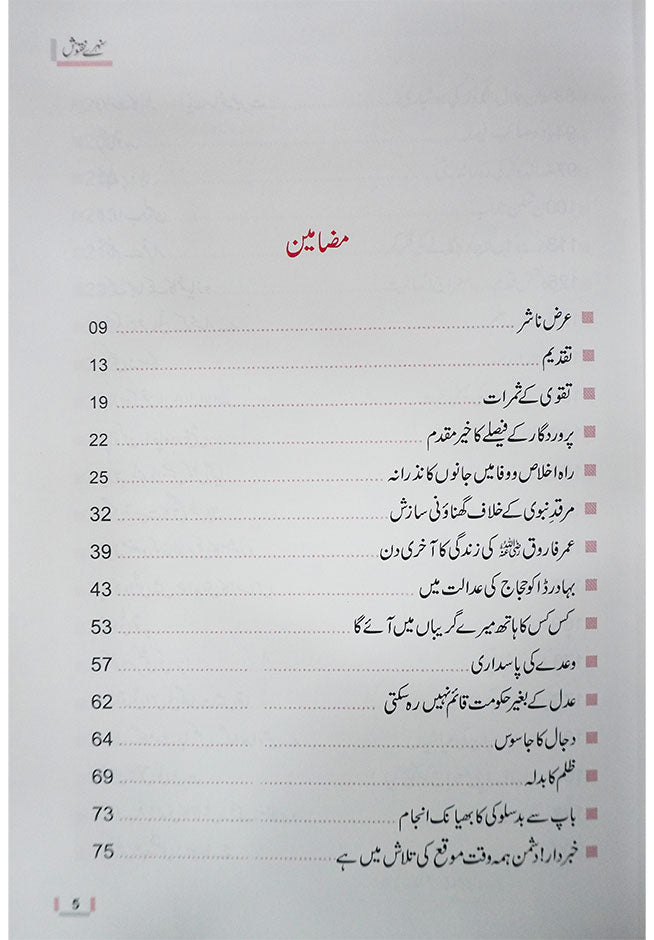 سنہرے نقوش
مضامین
عرض ناشر 09
تقدیم 13
تقویٰ کے ثمرات 19
پروردگار کے فیصلے کا خیر مقدم 22
راہ اخلاص ووفا میں جانوں کا نذرانہ 25
مرقدِ نبوی کے خلاف گھناؤنی سازش 32
عمر فاروق رضی اللہ عنہ کی زندگی کا آخری دن 39
بہادر ڈاکو حجاج کی عدالت میں 43
کس کس کا ہاتھ میرے گریباں میں آئے گا 53
وعدے کی پاسداری 57
عدل کے بغیر حکومت قائم نہیں رہ سکتی 62
دجال کا جاسوس 64
ظلم کا بدلہ 69
باپ سے بدسلوکی کا بھیانک انجام 73
خبردار! دشمن ہمہ وقت موقع کی تلاش میں ہے 75
5